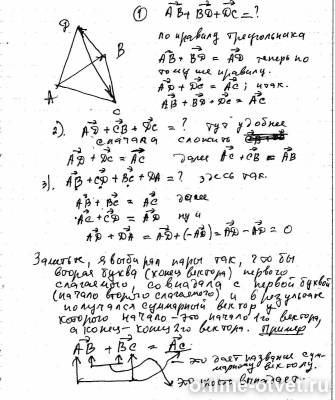 1) AB + BD + DC = ?
по правилу треугольника
AB + BD = AD теперь по
тому же правилу.
AD + DC = AC; итак.
AB + BD + DC = AC
D
B
A
C
2). AD + CB + DC = ? тут удобнее
сначала сложить
AD + DC = AC далее AC + CB = AB
3). AB + CD + BC + DA = ? здесь так.
AB + BC = AC далее
AC + CD = AD ну и
AD + DA = AD + (-AD) = AD - AD = 0
Заметьте, я выбирал пары так, чтобы
вторая буква (конец вектора) первого
слагаемого, совпадала с первой буквой
(начало второго слагаемого) и в результате
получался суммарный вектор у
которого начало - это начало 1го вектора,
а конец - конец 2го вектора. Пример
AB + BC = AC
это дает название сум-
марному вектору.
это просто выпадает.
online-otvet.ru